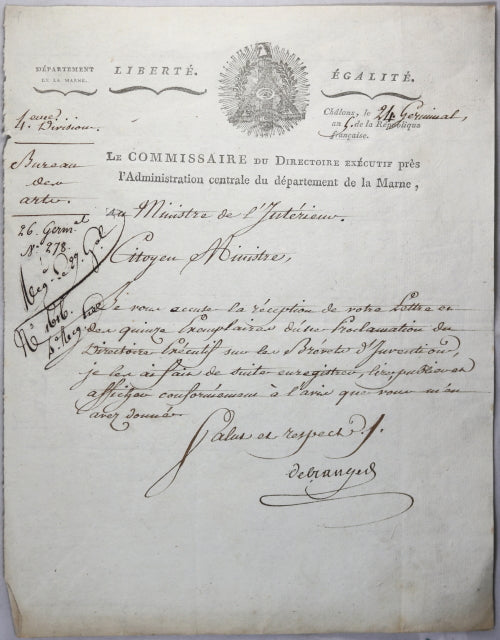 DÉPARTEMENT
DE LA MARNE.
LIBERTÉ.
ÉGALITÉ.
Châlons, le 24 Germinal,
an 5. de la République
française.
4.eme Division.
Bureau
des
arts.
26. Germ.al
N.º 278.
N.º 1616.
LE COMMISSAIRE DU DIRECTOIRE EXÉCUTIF près
l'Administration centrale du département de la Marne,
au Ministre de l'Intérieur.
Citoyen Ministre,
Je vous accuse la réception de votre Lettre et
des quinze Exemplaires d'une Proclamation du
Directoire Exécutif sur les Brévets d'Invention,
je les ai fait de suite enregistrer, lire, publier et
afficher conformément à l'avis que vous m'en
avez donné.
Salut et respect.